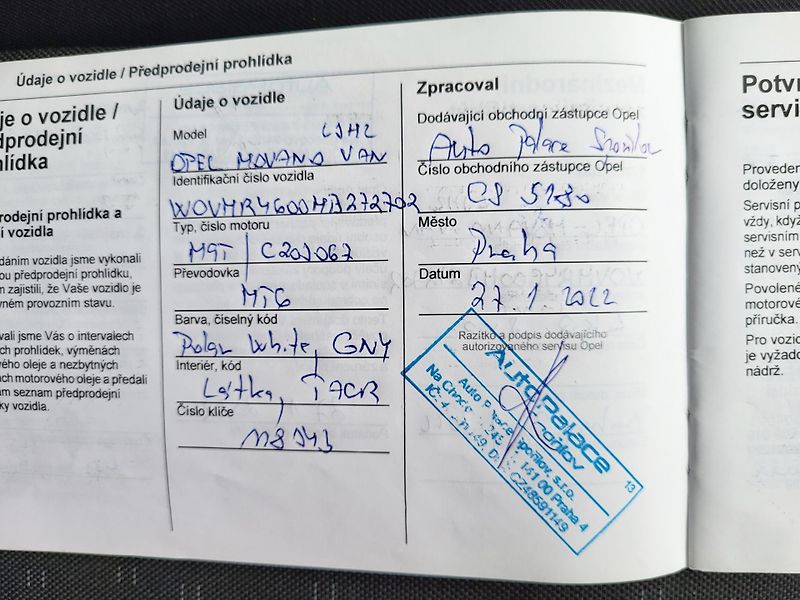 Údaje o vozidle / Předprodejní prohlídka
je o vozidle /
dprodejní
hlídka
rodejní prohlídka a
í vozidla
dáním vozidla jsme vykonali
ou předprodejní prohlídku,
m zajistili, že Vaše vozidlo je
vném provozním stavu.
vali jsme Vás o intervalech
ch prohlídek, výměnách
vého oleje a nezbytných
ách motorového oleje a předali
am seznam předprodejní
ky vozidla.
Údaje o vozidle
Model
L3H2
OPEL MOVANO VAN
Identifikační číslo vozidla
W0VMR4600MB272702
Typ, číslo motoru
M9T | C202067
Převodovka
MT6
Barva, číselný kód
Polar White, GNY
Interiér, kód
Látka, TACR
Číslo klíče
Zpracoval
Dodávající obchodní zástupce Opel
Auto Palace Spořilov
Číslo obchodního zástupce Opel
CS 5180
Město
Praha
Datum
27.1.2022
Razítko a podpis dodávajícího
autorizovaného servisu Opel
Auto Palace
Spořilov
Auto Palace Spořilov, s.r.o.
141 00 Praha 4
CZ48591149
13
Potvr
servi
Proveden
doloženy
Servisní p
vždy, když
servisním
než v serv
stanovený
Povolené
motorové
příručka.
Pro vozid
je vyžado
nádrž.